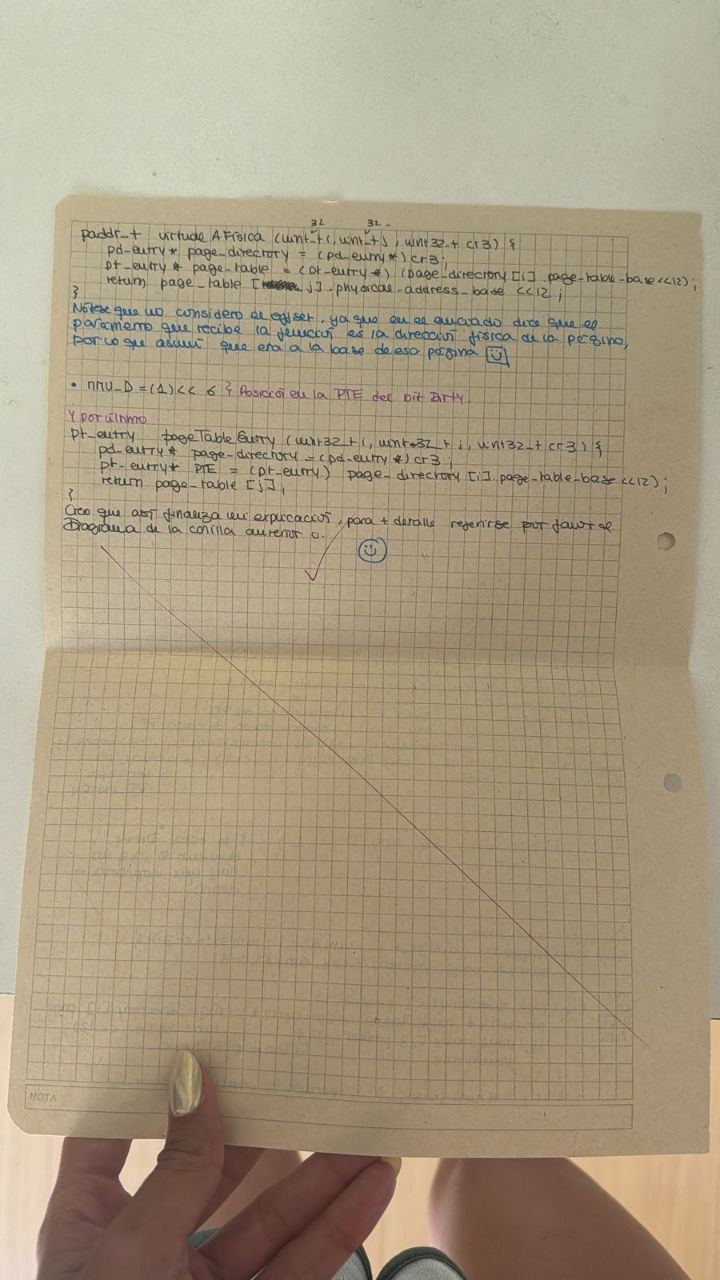 32 32
paddr_t virtudeAFisica (uint_t i, uint_t j, uint32_t cr3) {
pd_entry* page_directory = (pd_entry*) cr3;
pt_entry* page_table = (pt_entry*) (page_directory [i].page_table_base << 12);
return page_table [ j].physical_address_base << 12;
}
Nótese que no considero el offset, ya que en el enunciado dice que el
parámetro que recibe la función es la dirección física de la página,
por lo que asumí que era a la base de esa página
• MMU_D = (1) << 6 } Posición en la PTE del bit Dirty.
Y por último
pt_entry pageTableEntry (uint32_t i, uint32_t j, uint32_t cr3) {
pd_entry* page_directory = (pd_entry*) cr3;
pt_entry* PTE = (pt_entry) page_directory [i].page_table_base << 12);
return page_table [j];
}
Creo que así finaliza mi explicación, para + detalle referirse por favor al
Diagrama de la carilla anterior
NOTA